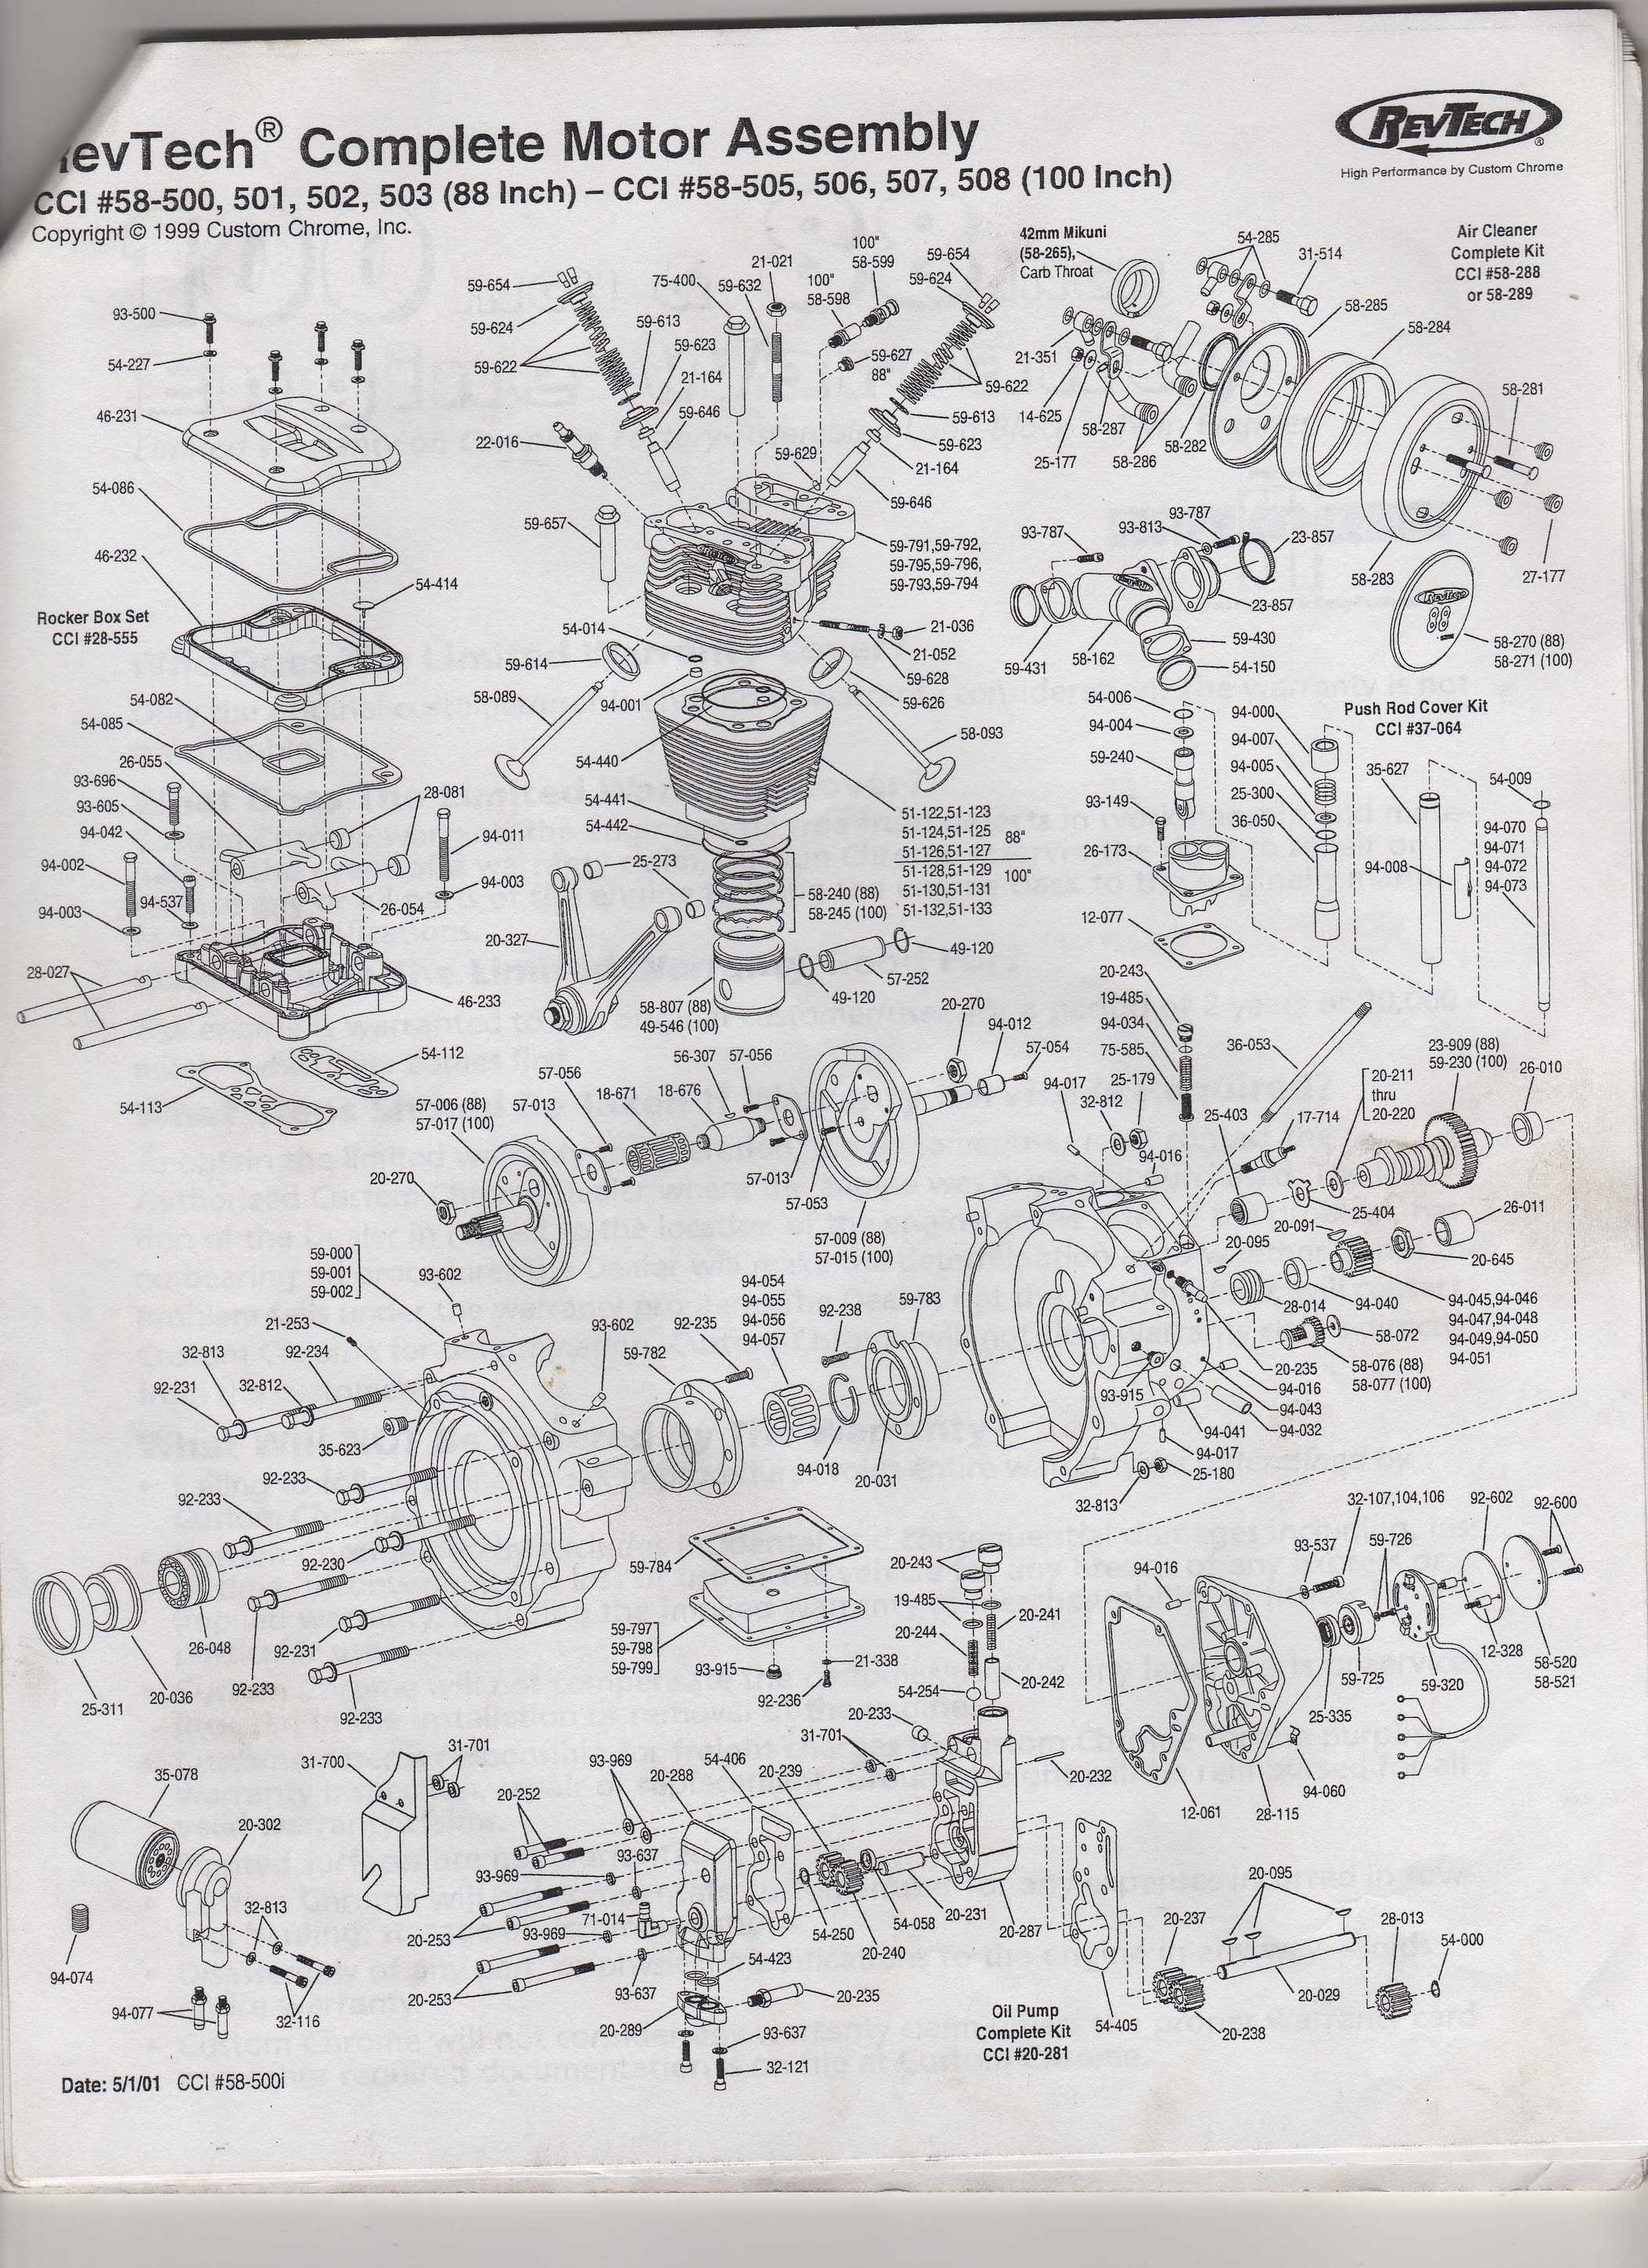 evTech® Complete Motor Assembly
CCI #58-500, 501, 502, 503 (88 Inch) – CCI #58-505, 506, 507, 508 (100 Inch)
Copyright © 1999 Custom Chrome, Inc.
REVTECH®
High Performance by Custom Chrome
93-500
54-227
46-231
54-086
46-232
54-414
Rocker Box Set
CCI #28-555
54-082
54-085
26-055
93-696
93-605
94-042
94-002
28-081
94-011
94-003
94-537
94-003
26-054
28-027
46-233
54-112
54-113
59-654
59-624
59-622
59-613
59-623
21-164
59-646
22-016
75-400
59-632
21-021
100"
58-598
100"
58-599
59-654
59-624
59-627
88"
59-622
59-613
59-623
21-164
59-646
59-629
59-657
59-791,59-792,
59-795,59-796,
59-793,59-794
54-014
59-614
58-089
94-001
21-036
21-052
59-628
59-626
58-093
54-440
54-441
54-442
25-273
20-327
51-122,51-123
51-124,51-125
88"
51-126,51-127
51-128,51-129
100"
51-130,51-131
51-132,51-133
58-240 (88)
58-245 (100)
49-120
57-252
49-120
58-807 (88)
49-546 (100)
42mm Mikuni
(58-265),
Carb Throat
54-285
31-514
Air Cleaner
Complete Kit
CCI #58-288
or 58-289
58-285
58-284
58-281
21-351
14-625
25-177
58-287
58-286
58-282
58-283
27-177
93-787
93-813
93-787
23-857
23-857
59-431
58-162
59-430
54-150
REVTECH
88
58-270 (88)
58-271 (100)
54-006
94-004
59-240
93-149
26-173
12-077
94-000
94-007
94-005
25-300
36-050
Push Rod Cover Kit
CCI #37-064
35-627
94-008
54-009
94-070
94-071
94-072
94-073
20-243
19-485
94-034
75-585
36-053
23-909 (88)
59-230 (100)
26-010
20-211
thru
20-220
17-714
25-403
94-017
25-179
32-812
94-016
25-404
20-091
20-095
26-011
20-645
28-014
94-040
94-045,94-046
94-047,94-048
94-049,94-050
94-051
58-072
58-076 (88)
58-077 (100)
20-235
94-016
94-043
94-032
93-915
94-041
94-017
25-180
32-813
20-270
94-012
57-054
56-307
57-056
57-056
18-671
18-676
57-006 (88)
57-017 (100)
57-013
57-013
57-053
20-270
57-009 (88)
57-015 (100)
59-000
59-001
59-002
93-602
21-253
32-813
92-234
92-231
32-812
35-623
92-233
92-233
92-230
92-231
92-233
92-233
26-048
20-036
25-311
93-602
92-235
59-782
94-054
94-055
94-056
94-057
92-238
59-783
94-018
20-031
59-784
59-797
59-798
59-799
93-915
21-338
92-236
20-243
19-485
20-241
20-244
20-242
54-254
20-233
32-107,104,106
92-602
92-600
93-537
59-726
94-016
12-328
58-520
58-521
59-725
59-320
25-335
94-060
12-061
28-115
35-078
20-302
32-813
94-074
94-077
32-116
31-700
31-701
20-252
93-969
20-288
54-406
20-239
31-701
20-232
93-969
93-637
20-253
71-014
93-969
20-253
93-637
54-250
20-240
54-058
20-231
20-287
54-423
20-235
20-289
93-637
32-121
Oil Pump
Complete Kit
CCI #20-281
54-405
20-237
20-238
20-095
20-029
28-013
54-000
Date: 5/1/01 CCI #58-500i